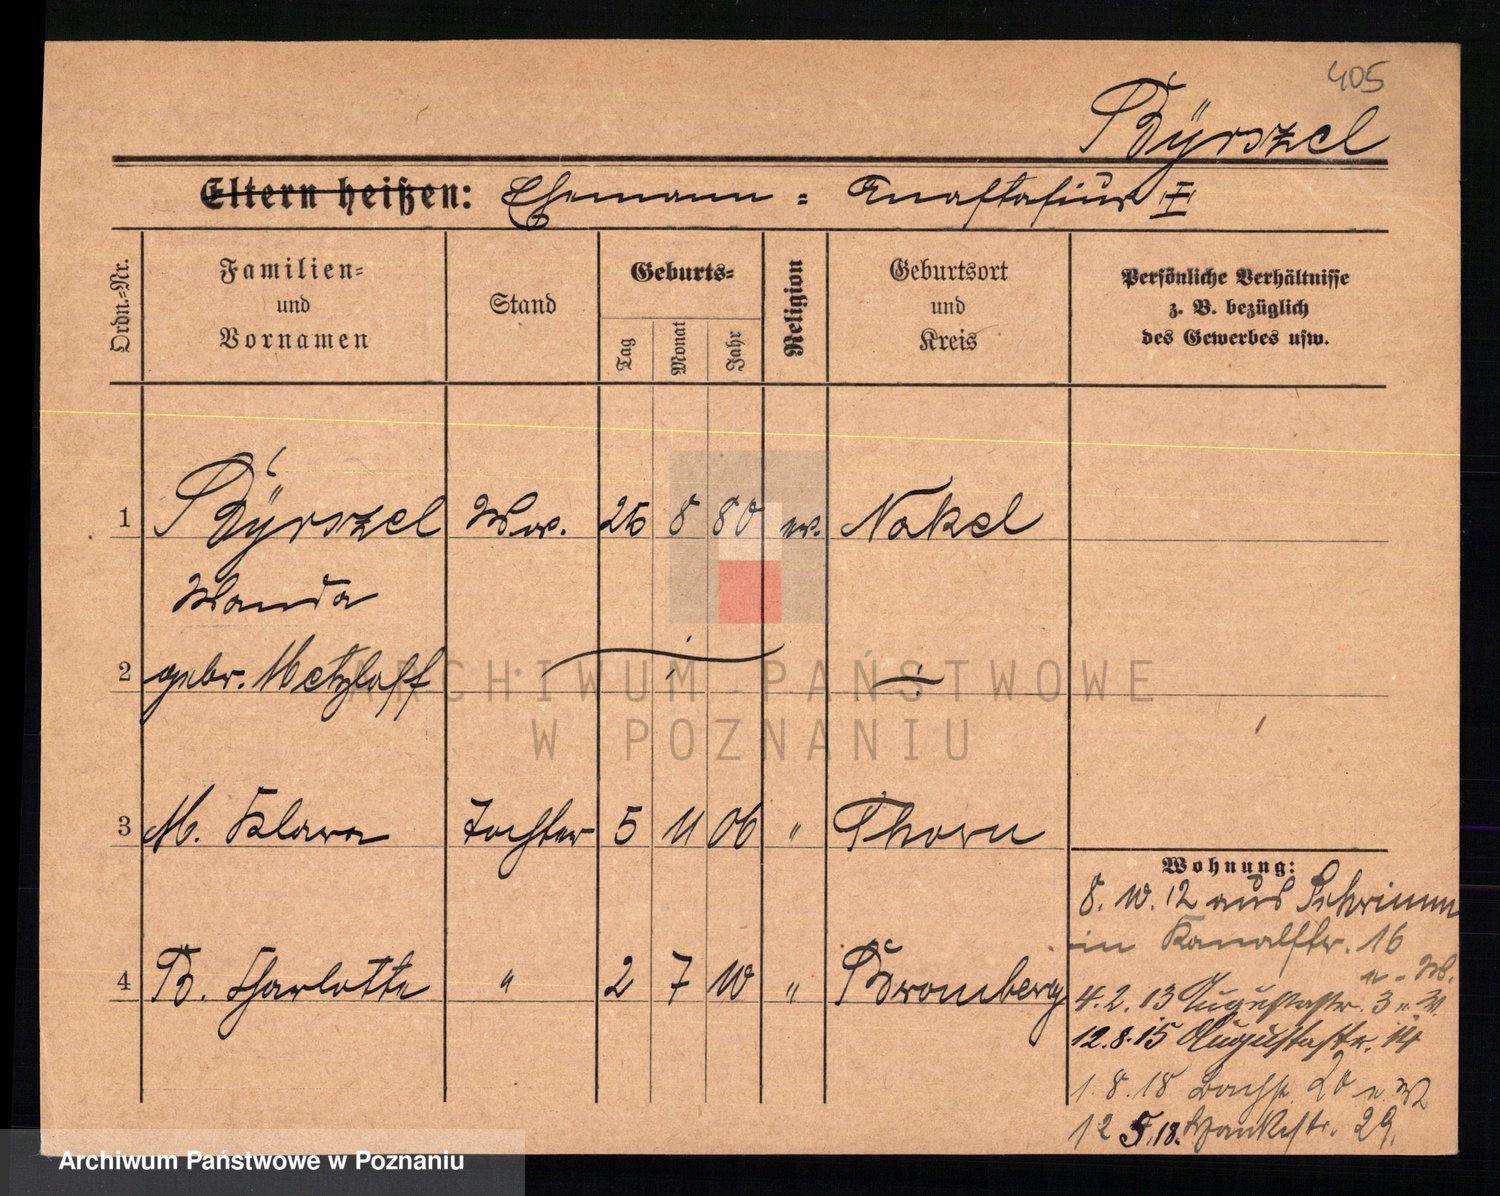 405
Byrszel
Eltern heißen: Ehemann = Anastasius II
Ordn.-Nr.
Familien-
und
Vornamen
Stand
Geburts-
Tag
Monat
Jahr
Religion
Geburtsort
und
Kreis
Persönliche Verhältnisse
z. B. bezüglich
des Gewerbes usw.
1 Byrszel Ww. 26 8 80 ev. Nakel
Wanda
2 gebr. Metzlaff
3 M. Klara Tochter 5 11 06 " Thorn
4 B. Charlotte " 2 7 10 " Bromberg
Wohnung:
8. 10. 12 aus Schrimm
in Kanalstr. 16
4. 2. 13 Augustastr. 3
12. 8. 15 Augustastr. 14
1. 8. 18 20
12 5. 18. 29.
ARCHIWUM PAŃSTWOWE
W POZNANIU
Archiwum Państwowe w Poznaniu